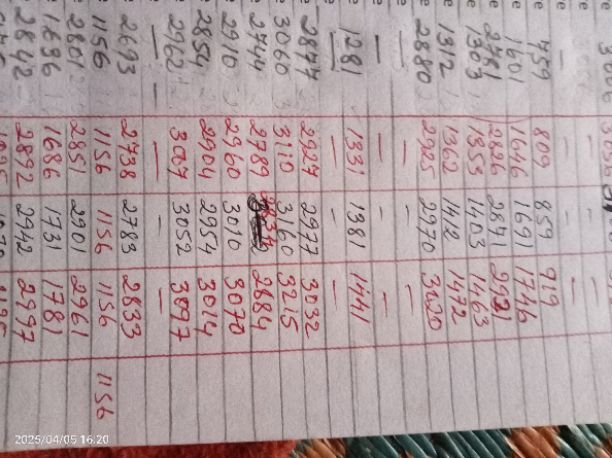 — — — —
— — — —
759 809 859 919
1601 1646 1691 1746
2781 2826 2871
1303 1353 1403 1463
1312 1362 1412 1472
2880 2925 2970 3020
— — — —
— — — —
1281 1331 1381 1441
— — — —
2877 2927 2977 3032
3060 3110 3160 3215
2744 2789 2834 2684
2910 2960 3010 3070
2854 2904 2954 3014
2962 3007 3052 3097
— — — —
2693 2738 2783 2833
1156 1156 1156 1156 1156
2801 2851 2901 2961
1636 1686 1731 1781
2842 2892 2942 2997
2025/04/05 16:20